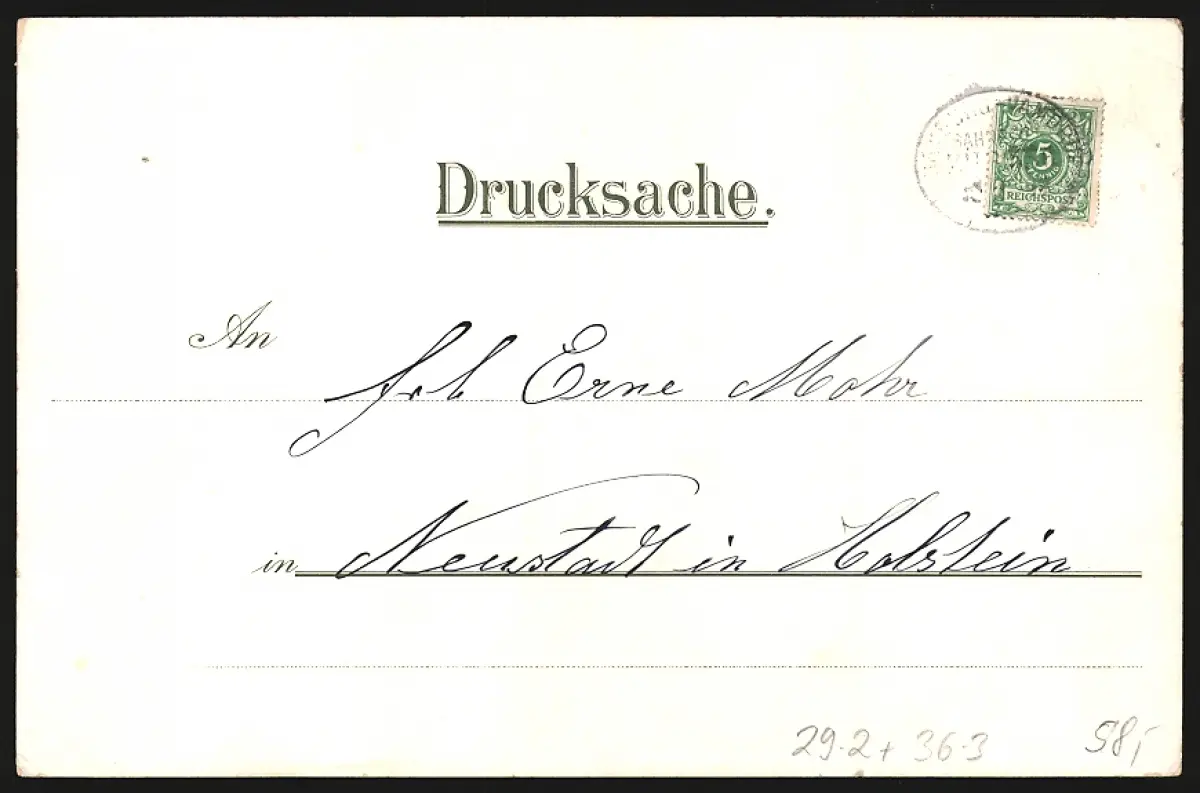 Drucksache.
5
PFENNIG
REICHSPOST
An
Frl Erne Mohr
in Neustadt in Holstein
29-2+ 36-3
58,-